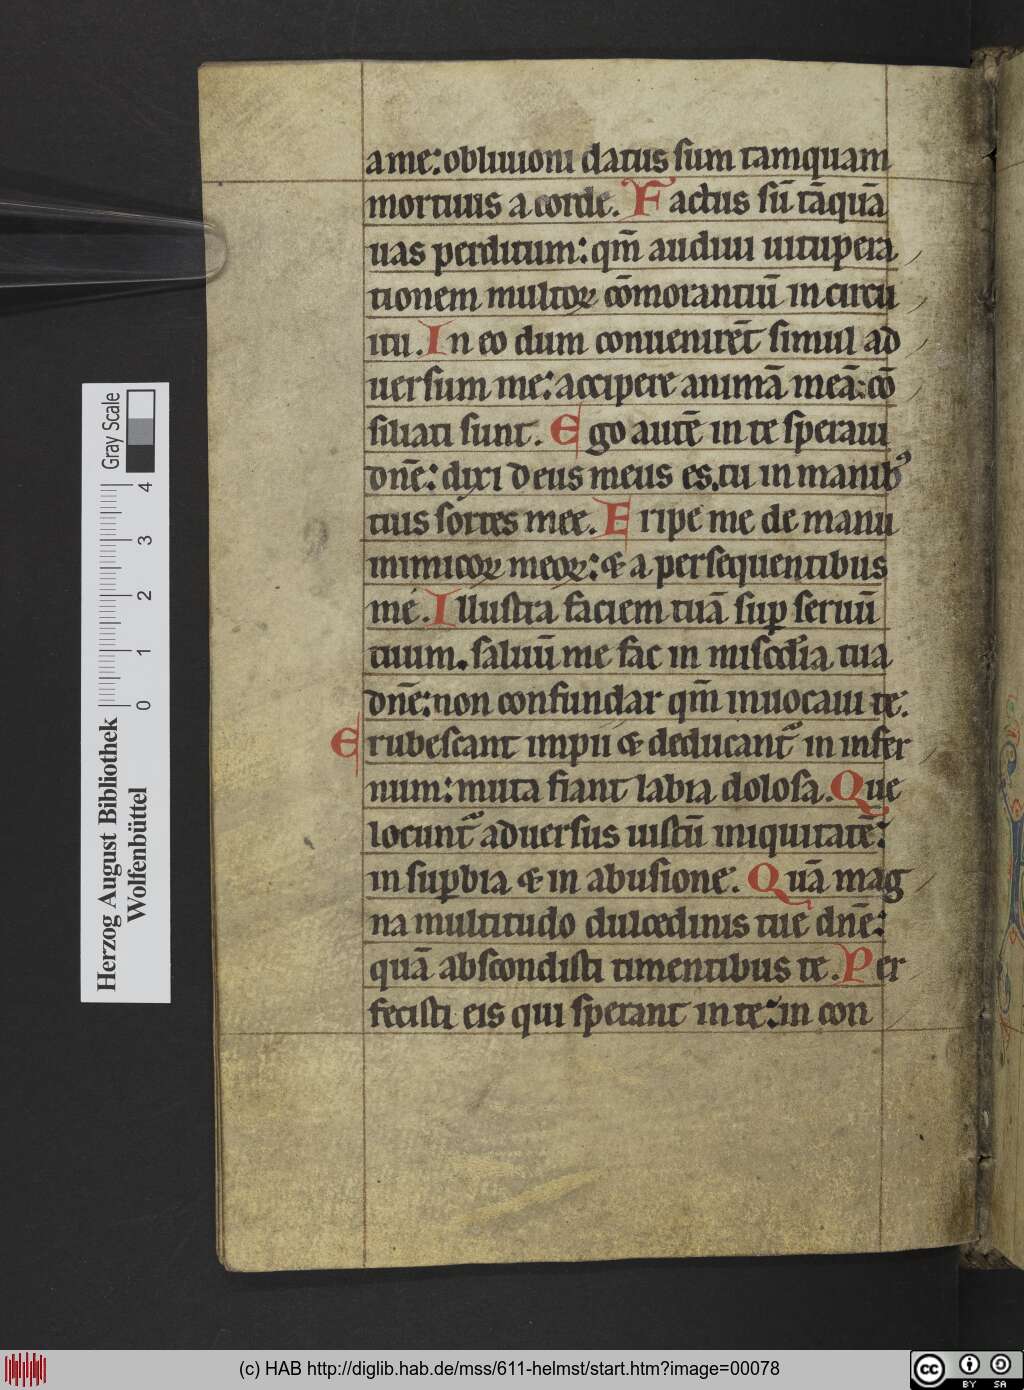 a me: obliuioni datus sum tamquam
mortuus a corde. Factus sū tāquā
uas perditum: qm̄ audiui uitupera
tionem multoꝝ cōmorantiū in circu
itu. In eo dum conuenirēt simul ad
uersum me: accipere animā meā: cō
siliati sunt. Ego autē in te speraui
dn̄e: dixi deus meus es tu. in manibꝰ
tuis sortes mee. Eripe me de manu
inimicoꝝ meoꝝ: & a persequentibus
me. Illustra faciem tuā suꝑ seruū
tuum. saluū me fac in misc̄dia tua
dn̄e: non confundar qm̄ inuocaui te.
Erubescant impii & deducantᷣ in infer
num: muta fiant labia dolosa. Que
locuntᷣ aduersus iustū iniquitatē:
in suꝑbia & in abusione. Quā mag
na multitudo dulcedinis tue dn̄e:
quā abscondisti timentibus te. Per
fecisti eis qui sperant in te: in con
Herzog August Bibliothek
Wolfenbüttel
0 1 2 3 4
Gray Scale
(c) HAB http://diglib.hab.de/mss/611-helmst/start.htm?image=00078
cc BY SA